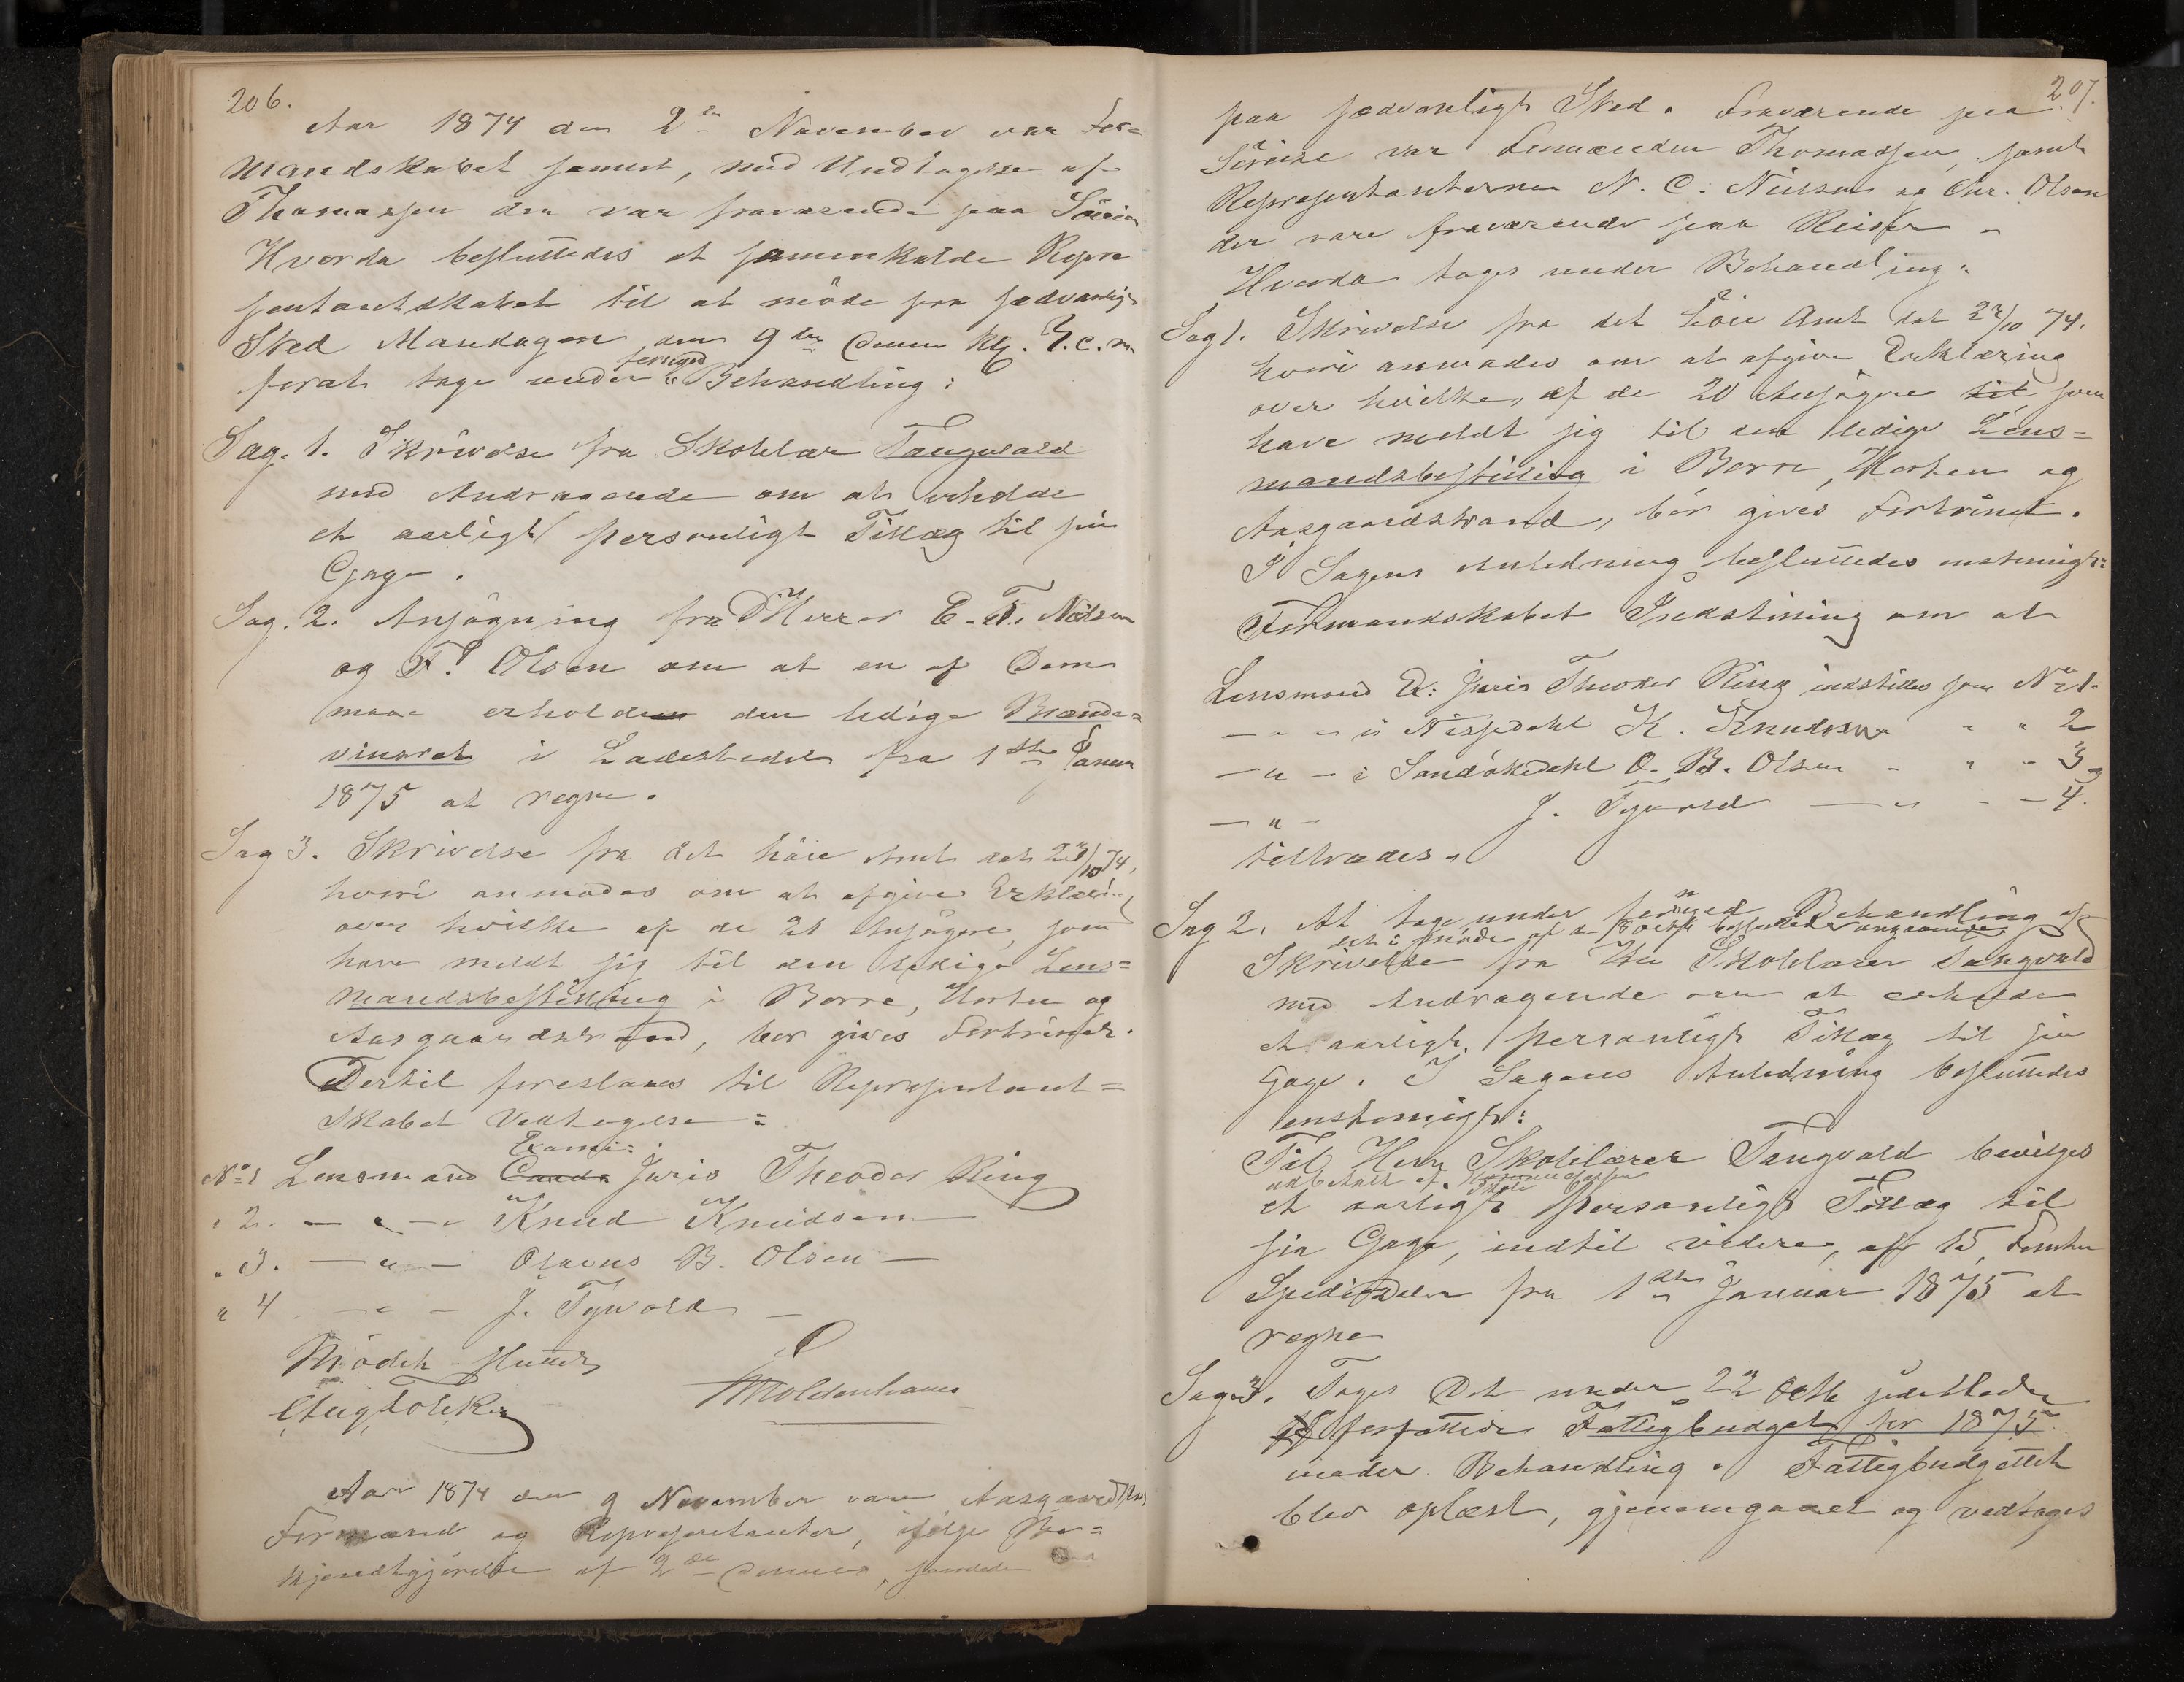 206.
Aar 1874 den 2den November var For=
mandskabet samlet, med Undtagelse af
Thomassen der var fraværende paa Söreise
Hvorda besluttedes at sammenkalde Repre
sentantskabet til at möde paa sædvanligt
Sted Mandagen den 9de Dennes Kl. 3. e. m
fornyed
forat tage under Behandling:
Sag. 1. Skrivelse fra Skolelær Tangwald
med Andragende om at erholde
et aarligt personligt Tillæg til sin
Gage.
Sag. 2. Ansögning fra DHerrer E. T. Nielsen
og F. Olsen om at en af Dem
maa erholde den ledige Brænde=
vinsret i Ladestedet fra 1ste Januar
1875 at regne.
Sag 3. Skrivelse fra det höie Amt dat 22/10 74,
hvori anmodes om at afgive Erklæring
over hvilke af de 21 Ansögere, som
have meldt sig til den ledige Lens=
mandsbestilling i Borre, Horten og
Aasgaardstrand, bör gives Fortrinet.
Dertil foreslaaes til Representant=
skabet Vedtagelse:
Exami:
No 1 Lensmand Candr Juris Theodor Ring
" 2. — " — Knud Knudsen —
" 3. — " — Olaves B. Olsen —
" 4 — " — J. Tywold —
Mödet sluttet
Aug Foleker
Moldenhauer
Aar 1874 den 9 November vare Aasgaardstrands
Formænd og Representanter, ifölge Be=
kjendtgjörelse af 2den Dennes, samlede
207.
paa sædvanligt Sted. Fraværende paa
Söreise var Formanden Thomassen, samt
Representanterne N. C. Nielsen og Chr. Olsen
der vare fraværende paa Reiser.
Hvorda toges under Behandling:
Sag 1. Skrivelse fra det höie Amt dat 22/10 74.
hvori anmodes om at afgive Erklæring
over hvilke, af de 20 Ansögere til som
have meldt sig til den ledige Lens=
mandsbestilling i Borre, Horten og
Aasgaardstrand, bör gives Fortrinet.
I Sagens Anledning besluttedes enstemigt:
Formandskabet Indstilling om at
Lensmand Ex: Juris Theodor Ring indstilles som No 1.
— " — i Nissedahl K. Knudsen " " 2
— " — i Sandökedahl O. B. Olsen - " - 3 og
— " — J. Tywold — " - - 4.
tiltrædes.
Sag 2. At tage under fornyed Behandling af
det i Möde af den 18 Octbr besluttede angaaende
Skrivelse fra Hr Skolelærer Tangvald
med Andragende om at erholde
et aarligt personligt Tillæg til sin
Gage. I Sagens Anledning besluttedes
enstemigt:
Til Herr Skolelærer Tangvald bevilges
udbetalt af Skole
et aarligt personligt Tillæg til
sin Gage, indtil videre, af 15, Femten
Speciedaler fra 1ste Januar 1875 at
regne
Sag 3. Toges Det under 22 Octbr
forfattede Fattigbudget for 1875
under Behandling. Fattigbudgettet
blev oplæst, gjenemgaaet og vedtoges